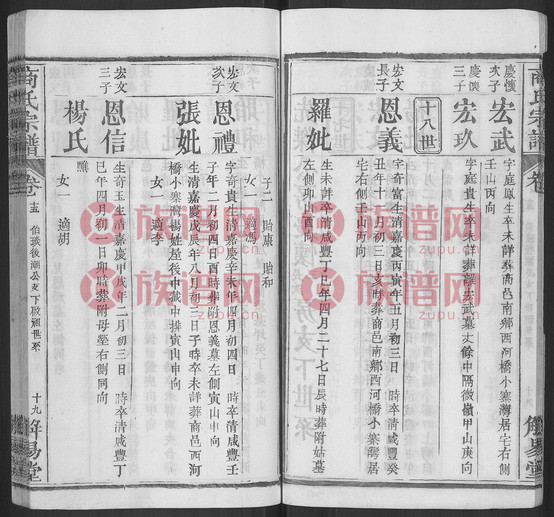 商氏宗譜
卷
解易堂
慶懷次子
宏武
字庭鳳生卒未詳葬商邑南鄉西河橋小寨灣居宅右側
壬山丙向
慶懷三子
宏玖
字庭貴生卒未詳葬宏武墓丈餘中隔微嶺甲山庚向
十八世
宏文長子
恩義
字奇富生清嘉慶丙寅年五月初三日 時卒清咸豐癸
丑年十一月初三日亥時葬商邑南鄉西河橋小寨灣居
宅右側壬山丙向
羅妣
生未詳卒清咸豐丁巳年四月二十七日辰時葬附姑墓
左側卯山酉向
子二 貽康 貽和
女一 適馮
宏文次子
恩禮
字奇貴生清嘉慶辛未年四月初四日 時卒清咸豐壬
子年二月初四日酉時葬附恩義墓左側寅山申向
張妣
生清嘉慶戊辰年八月初三日子時卒未詳葬商邑西河
橋小寨灣楊姓屋後中嶽中排寅山申向
女一 適李
宏文三子
恩信
字奇玉生清嘉慶甲戌年二月初三日 時卒清咸豐丁
巳年四月初一日卯時葬附母塋右側同向
楊氏
醮
女一 適胡
商氏宗譜
卷
十九
解易堂